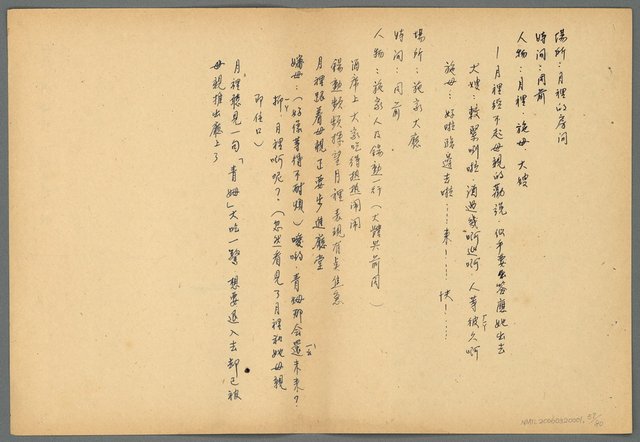 場所：月裡的房间
時间：同前
人物：月裡．施母．大嫂
月裡经不起母親的勸說 似乎要答應她出去
大嫂：較緊咧啦，酒過幾啊巡啊，人等彼久啊
施母：好啦臨邊去啦……來！……快！……
場所：施家大廳
時间：同前
人物：施家人及錦勳一行（大體與前同）
酒席上 大家吃得熱熱闹闹
錦勳頻頻探望 月裡表現有点焦急
月裡跟着母親正要步進廳堂
嬸母：（好像等得不耐煩）噯喲．青姆那会還未来？
抑！月裡啊呢？（忽然看見了月裡和她母親
即住口）
月裡聽見一句「青姆」大吃一驚 想要退入去 却已被
母親推出廳上了
NMTL 20060320001, 57/80